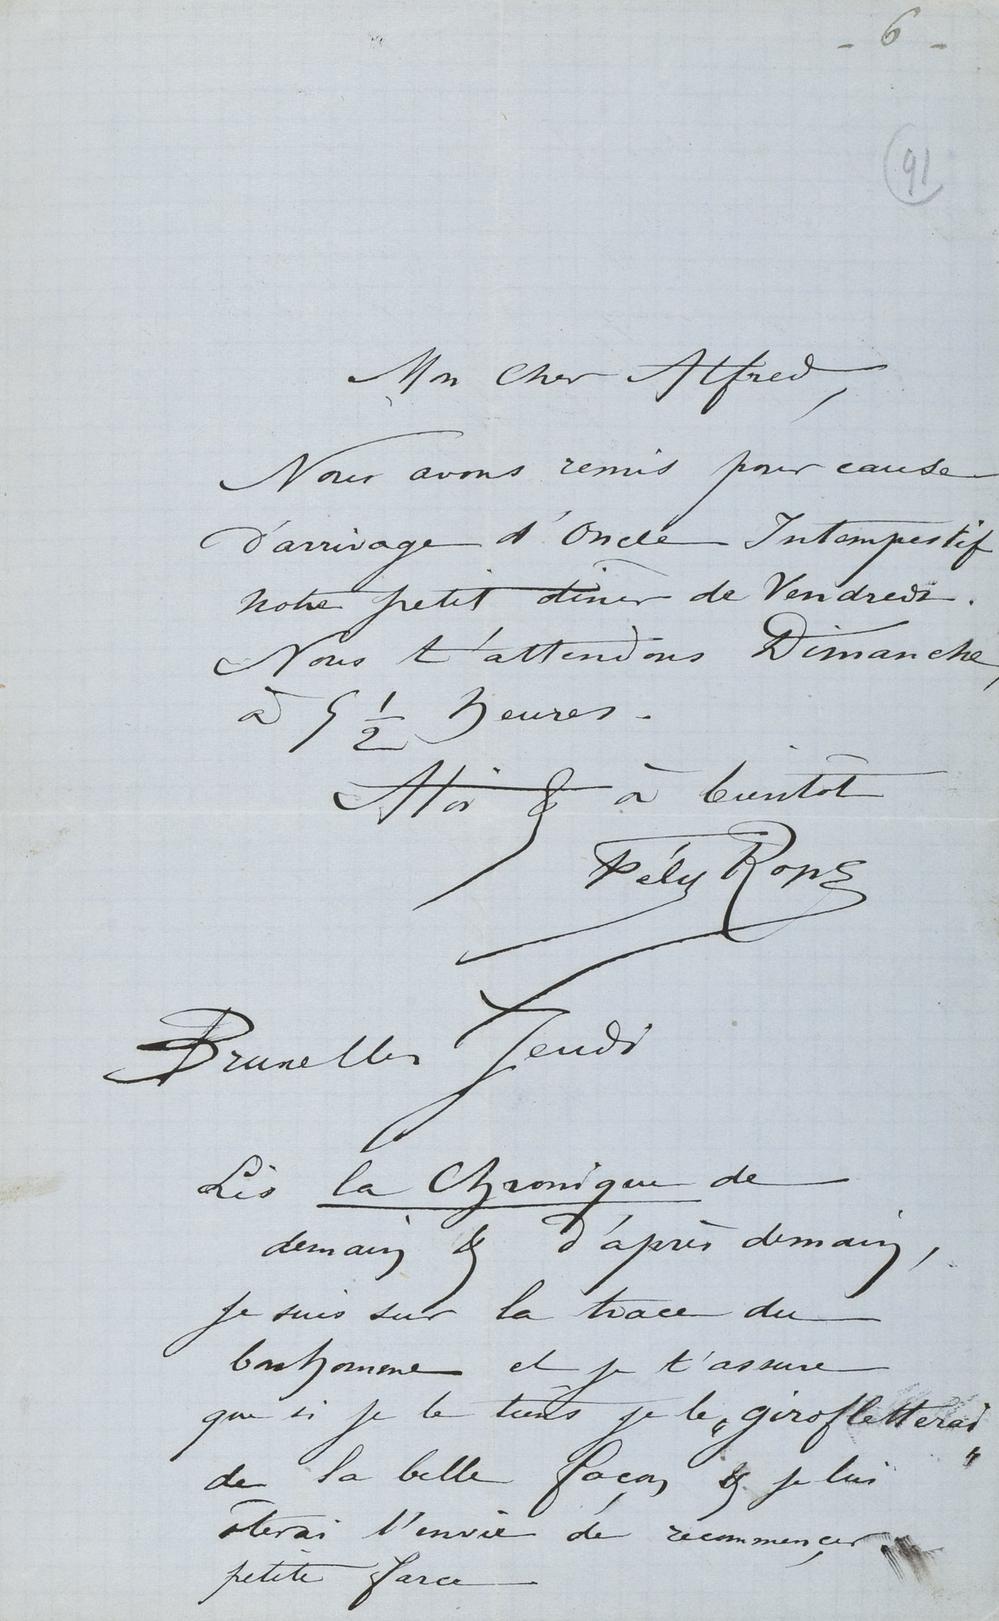 - 6 -
91
Mon cher Alfred,
Nous avons remis pour cause
d'arrivage d'Oncle Intempestif
notre petit dîner de Vendredi.
Nous t'attendons Dimanche,
à 5 1/2 heures.
à toi & à bientôt
Fély Rops
Bruxelles Jeudi
Lis la Chronique de
demain & d'après demain,
je suis sur la trace du
bonhomme et je t'assure
que si je le tiens je le „girofletterai"
de la belle façon & je lui
ôterai l'envie de recommencer
petite farce